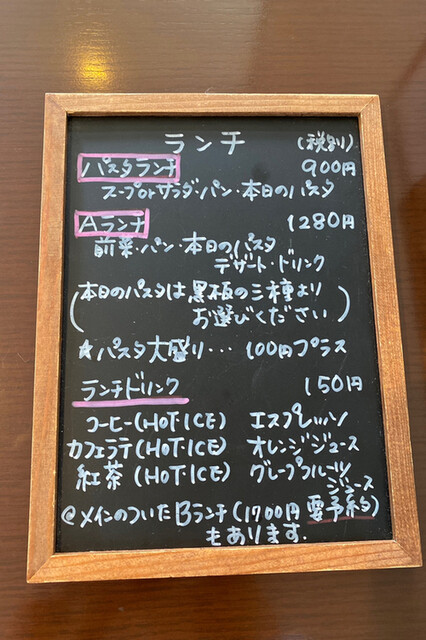 ランチ (税別)
パスタランチ 900円
スープorサラダ・パン・本日のパスタ
Aランチ 1280円
前菜・パン・本日のパスタ
デザート・ドリンク
(本日のパスタは黒板の三種より
お選びください)
★パスタ大盛り… 100円プラス
ランチドリンク 150円
コーヒー(HOT・ICE) エスプレッソ
カフェラテ(HOT・ICE) オレンジジュース
紅茶 (HOT・ICE) グレープフルーツ
ジュース
@メインのついたBランチ(1700円 要予約)
もあります.